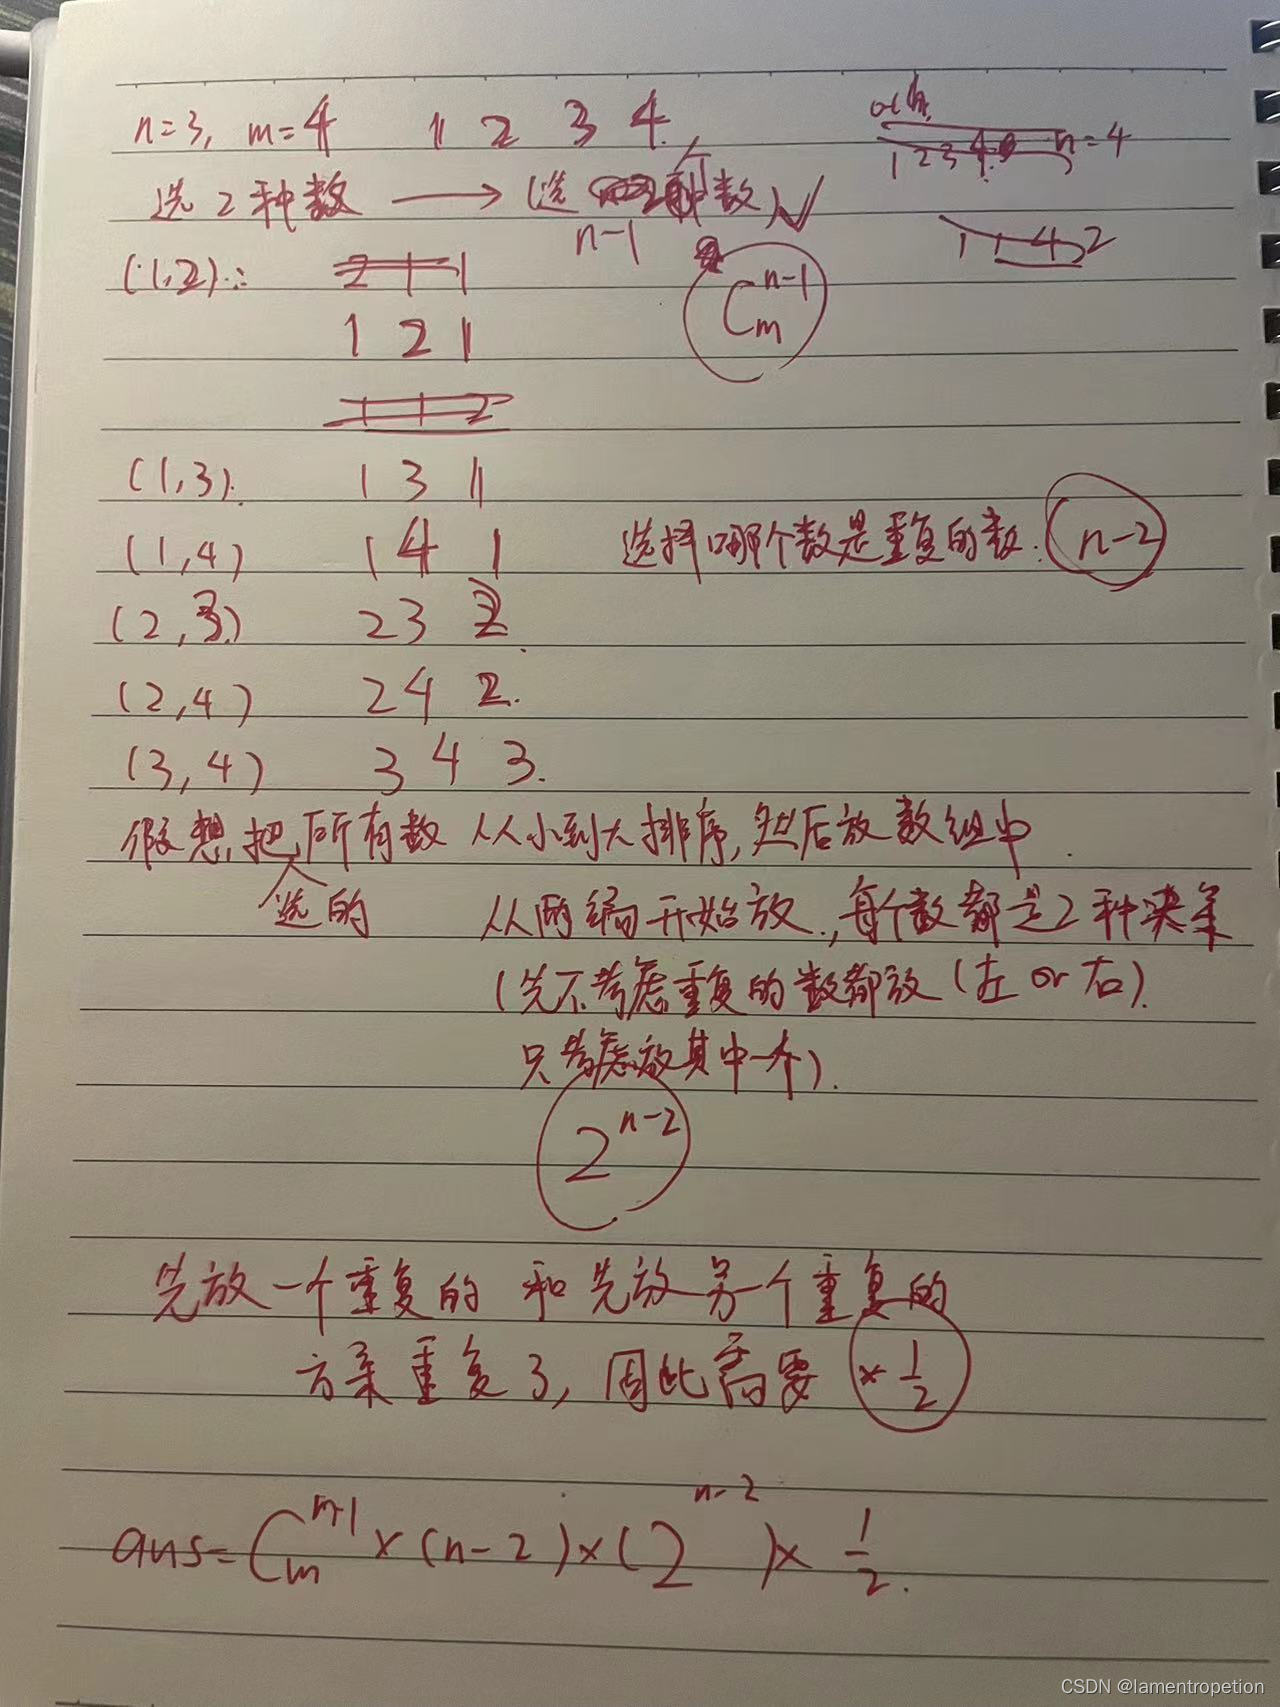 n=3, m=4 1 2 3 4
n=4
1 2 3 4
选2种数 → (选 n-1 种数)
1 1 4 2
(1,2): 2 1 1
C_m^{n-1}
1 2 1
1 1 2
(1,3). 1 3 1
(1,4) 1 4 1
选择哪个数是重复的数. n-2
(2,3) 2 3 2
(2,4) 2 4 2.
(3,4) 3 4 3.
假想,把所有数从小到大排序,然后放数组中.
选的
从两端开始放.,每个数都是2种决策
(先不考虑重复的数都放(左 or 右).
只考虑放其中一个).
2^{n-2}
先放一个重复的 和先放另一个重复的
方案重复了,因此需要 × 1/2
ans= C_m^{n-1} × (n-2) × (2^{n-2}) × 1/2.
CSDN @lamentropetion